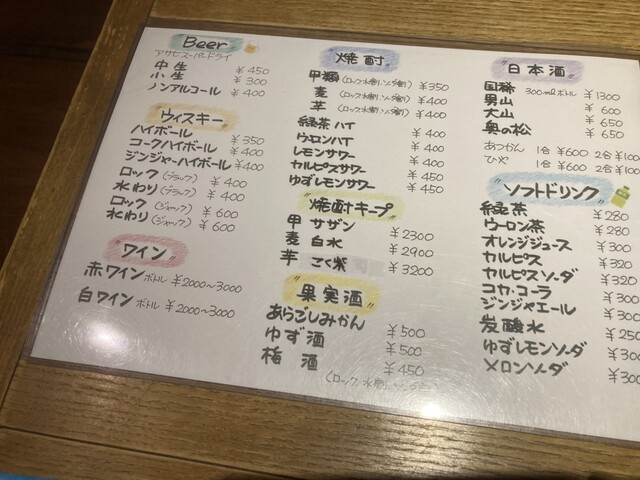 Beer
アサヒスーパードライ
中生 ¥450
小生 ¥300
ノンアルコール ¥400
ウィスキー
ハイボール ¥350
コークハイボール ¥400
ジンジャーハイボール ¥400
ロック(ブラック) ¥400
水わり(ブラック) ¥400
ロック(ジャック) ¥600
水わり(ジャック) ¥600
"ワイン"
赤ワインボトル ¥2000〜3000
白ワインボトル ¥2000〜3000
"焼酎"
甲類(ロック、水割、ソーダ割) ¥350
麦(ロック、水割、ソーダ割) ¥400
芋(ロック、水割、ソーダ割) ¥400
緑茶ハイ ¥400
ウーロンハイ ¥400
レモンサワー ¥400
カルピスサワー ¥450
ゆずレモンサワー ¥450
"焼酎キープ"
甲 サザン ¥2300
麦 白水 ¥2900
芋 こく紫 ¥3200
"果実酒"
あらごしみかん ¥500
ゆず酒 ¥500
梅酒 ¥450
(ロック、水割、
"日本酒"
国稀 300mlボトル ¥1300
男山 ¥600
大山 ¥650
奥の松 ¥650
あつかん 1合¥600 2合¥100
ひや 1合¥600 2合¥100
"ソフトドリンク"
緑茶 ¥280
ウーロン茶 ¥280
オレンジジュース ¥300
カルピス ¥320
カルピスソーダ ¥320
コカ・コーラ ¥300
ジンジャエール ¥300
炭酸水 ¥250
ゆずレモンソーダ ¥300
メロンソーダ ¥300